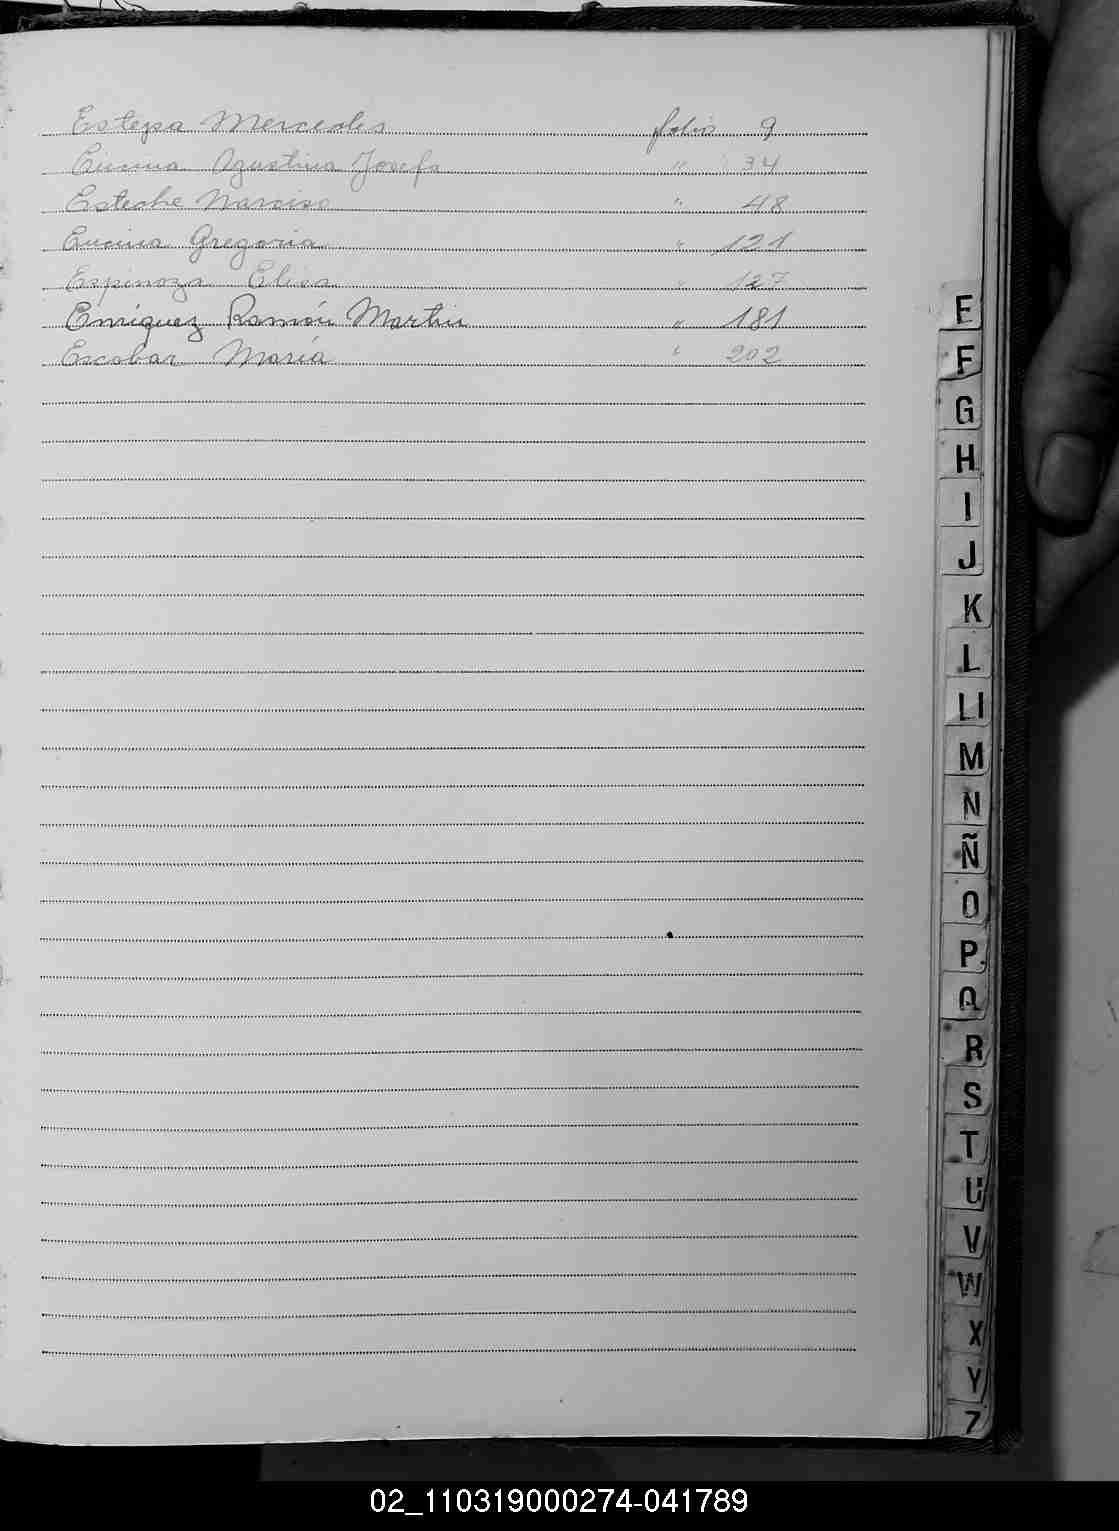 Estepa Mercedes folio 9
Encina Agustina Josefa " 34
Esteche Narciso " 48
Encina Gregoria " 121
Espinoza Elisa " 127
Enriquez Ramón Martin " 181
Escobar María " 202
E
F
G
H
I
J
K
L
Ll
M
N
Ñ
O
P
Q
R
S
T
U
V
W
X
Y
Z
02_110319000274-041789